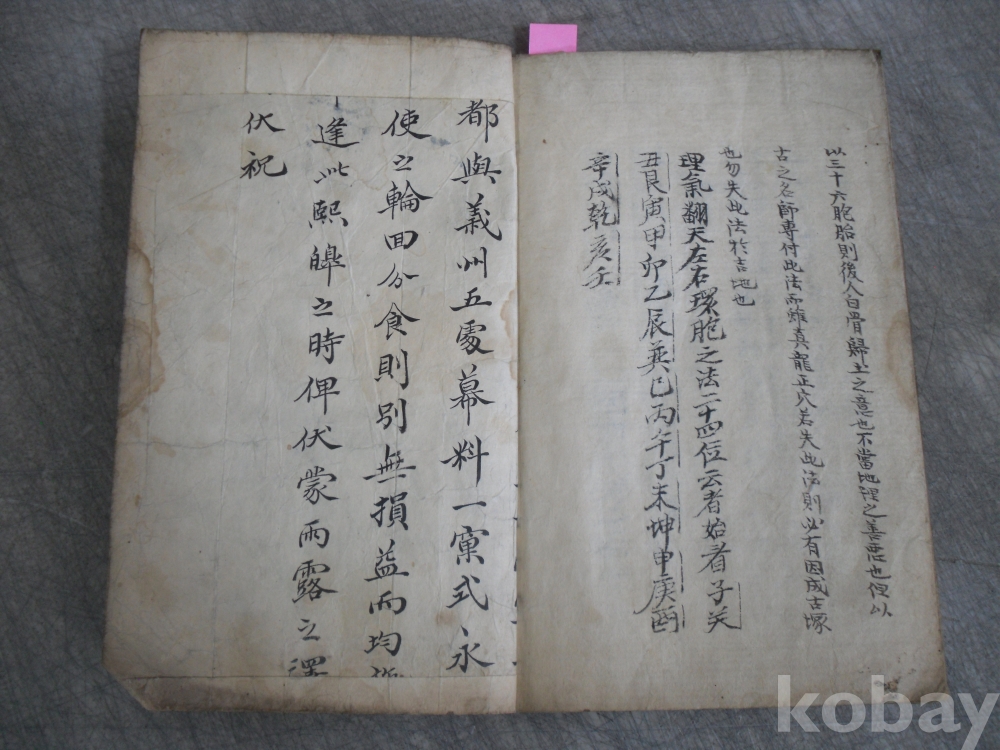 以三十六胞胎則後人白骨歸土之意也不當地理之善惡也但以
古之名師專付此法而雖真龍正穴若失此法則必有因成古塚
也勿失此法於吉地也
理氣翻天左右環胞之法二十四位云者始看子癸
丑艮寅甲卯乙辰巽巳丙午丁未坤申庚酉
辛戌乾亥壬
都與義州五處幕料一窠式永
使之輪回分食則別無損益而均
逢此熙皥之時俾伏蒙雨露之澤
伏祝
kobay